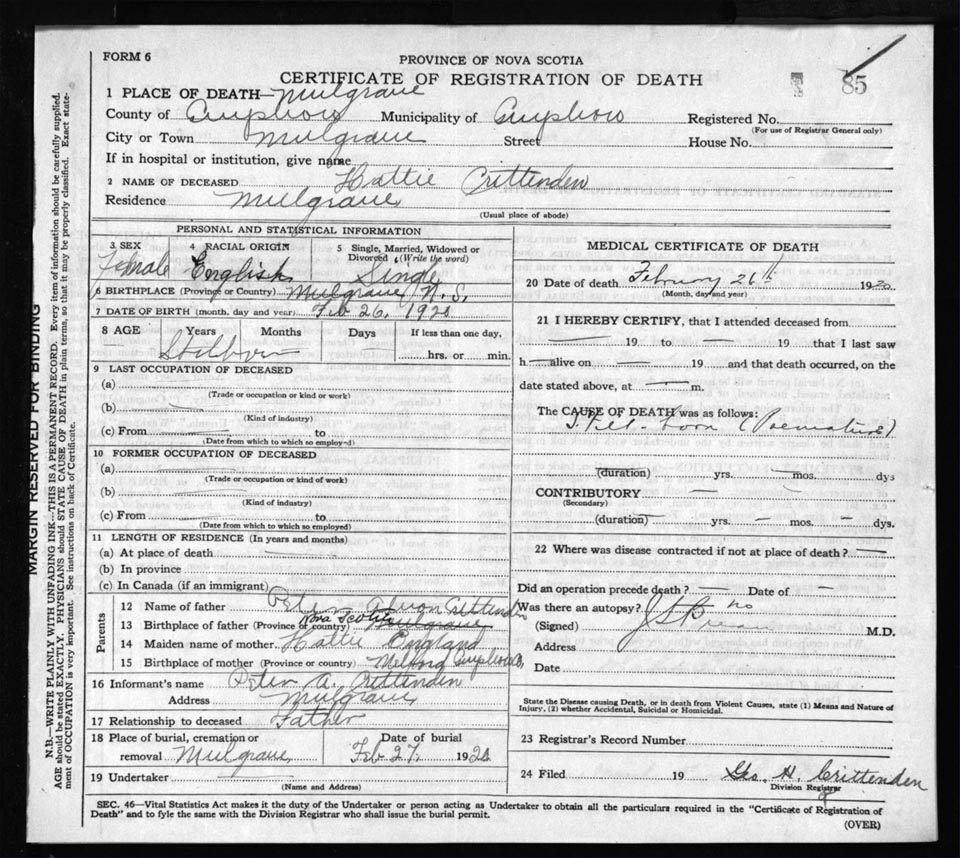 FORM 6
PROVINCE OF NOVA SCOTIA
CERTIFICATE OF REGISTRATION OF DEATH
85
1 PLACE OF DEATH—Mulgrave
County of Guysboro Municipality of Guysboro Registered No.
(For use of Registrar General only)
City or Town Mulgrave Street House No.
If in hospital or institution, give name
2 NAME OF DECEASED Hattie Crittenden
Residence Mulgrave
(Usual place of abode)
PERSONAL AND STATISTICAL INFORMATION
3 SEX 4 RACIAL ORIGIN 5 Single, Married, Widowed or
Divorced (Write the word)
Female English Single
6 BIRTHPLACE (Province or Country) Mulgrave N.S.
7 DATE OF BIRTH (month, day and year) Feb 26, 192
8 AGE Years Months Days If less than one day,
Stillborn hrs. or min.
9 LAST OCCUPATION OF DECEASED
(a)
(Trade or occupation or kind or work)
(b)
(Kind of industry)
(c) From to
(Date from which to which so employ-d)
10 FORMER OCCUPATION OF DECEASED
(a)
(Trade or occupation or kind of work)
(b)
(Kind of industry)
(c) From to
(Date from which to which so employed)
11 LENGTH OF RESIDENCE (In years and months)
(a) At place of death
(b) In province
(c) In Canada (if an immigrant)
Parents
12 Name of father Peter Crittenden
Nova Scotia
13 Birthplace of father (Province or country) Mulgrave
14 Maiden name of mother Hattie England
15 Birthplace of mother (Province or country) Milford Guysboro Co
16 Informant's name Peter A. Crittenden
Address Mulgrave
17 Relationship to deceased Father
18 Place of burial, cremation or Date of burial
removal Mulgrave Feb 27 192
19 Undertaker
(Name and Address)
MEDICAL CERTIFICATE OF DEATH
20 Date of death February 26th 192
(Month, day and year)
21 I HEREBY CERTIFY, that I attended deceased from
19 to 19 that I last saw
h alive on 19 and that death occurred, on the
date stated above, at m.
The CAUSE OF DEATH was as follows:
Still-born (Premature)
(duration) yrs. mos. dys
CONTRIBUTORY
(Secondary)
(duration) yrs. mos. dys.
22 Where was disease contracted if not at place of death?
Did an operation precede death? Date of
Was there an autopsy? no
(Signed) M.D.
Address
Date
State the Disease causing Death, or in death from Violent Causes, state (1) Means and Nature of
Injury, (2) whether Accidental, Suicidal or Homicidal.
23 Registrar's Record Number
24 Filed 19 Geo. H. Crittenden
Division Registrar
SEC. 46—Vital Statistics Act makes it the duty of the Undertaker or person acting as Undertaker to obtain all the particulars required in the "Certificate of Registration of
Death" and to fyle the same with the Division Registrar who shall issue the burial permit.
(OVER)
MARGIN RESERVED FOR BINDING
N.B.—WRITE PLAINLY WITH UNFADING INK—THIS IS A PERMANENT RECORD. Every item of information should be carefully supplied.
AGE should be stated EXACTLY. PHYSICIANS should STATE CAUSE OF DEATH in plain terms, so that it may be properly classified. Exact state-
ment of OCCUPATION is very important. See instructions on back of Certificate.